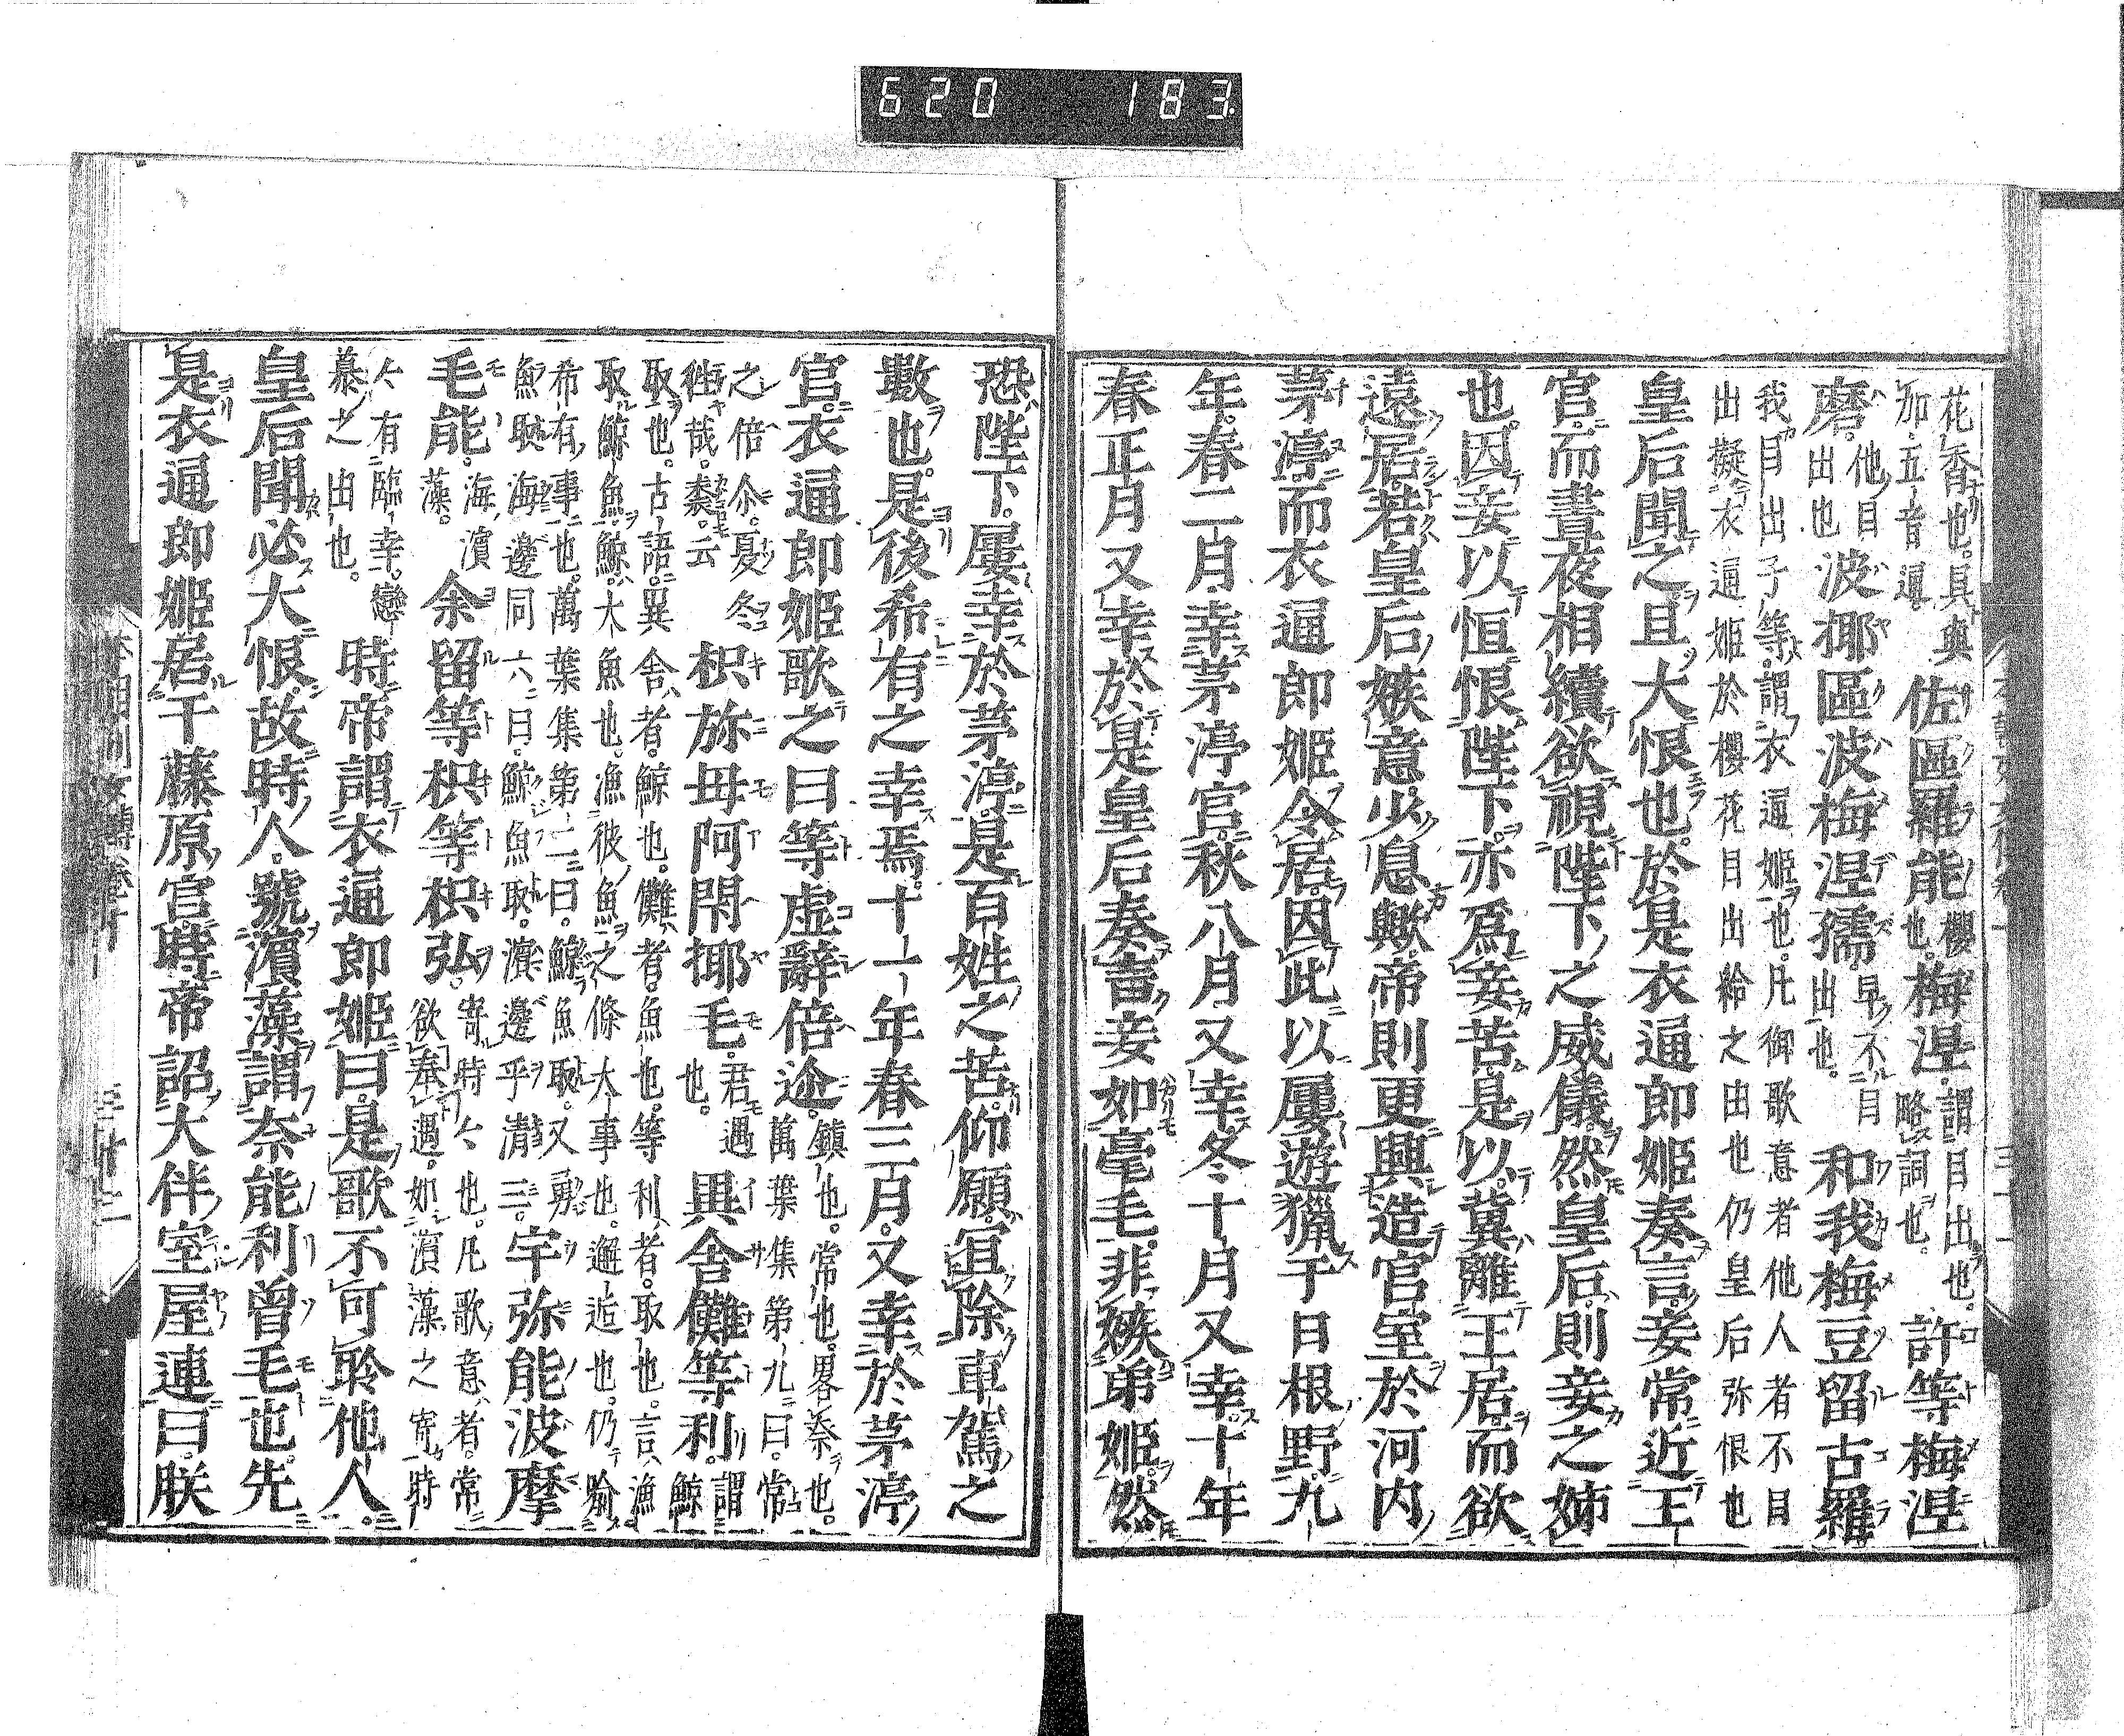 620 183
花香也。具與
加五音通。
佐區羅能
櫻
也。
梅涅
謂目出也。
略詞也。
許等梅涅
磨。
他目
出也
波椰區波梅涅孺。
早不目
出也。
和我梅豆留古羅
我目出子等。謂衣通姬也。凡御歌意者他人者不目
出擬衣通姬於櫻花目出給之由也仍皇后弥恨也
皇后聞之且大恨也。於是衣通郎姬奏言。妾常近王
宮。而晝夜相續欲視陛下之威儀。然皇后則妾之姉
也。因妾以恒恨陛下。亦爲妾苦。是以。冀離王居。而欲
遠居。若皇后嫉意少息歟。帝則更興造宮室於河内
茅渟。而衣通郎姬令居。因此以屢遊獵于日根野。九
年。春二月。幸茅渟宮。秋八月又幸。冬十月又幸。十年
春正月又幸。於是皇后奏。妾如毫毛。非嫉弟姬。然
恐陛下。屢幸於茅渟。是百姓之苦。仰願。宜除車駕之
數也。是後希有之幸焉。十一年春三月。又幸於茅渟
宮。衣通郎姬歌之曰。等虚辭倍迩。
鎮也。常也。畧奈也。
萬葉集第九曰。常
之倍尒。夏冬
往哉。裘。云
枳弥母阿閇椰毛。
君遇
也。
異舍儺等利。
謂
鯨
取也。古語異舍者。鯨也。儺者。魚也。等利者。取也。言漁
取鯨魚。鯨大魚也。漁彼魚之條大事也。邂逅也。仍喩
希有事也。萬葉集第二曰。鯨魚取。又
魚取海邊同六曰。鯨魚取。濱邊乎清三。
宇弥能波摩
毛能。
海濱
藻。
余留等枳等枳弘。
寄時々也。凡歌意者。常
欲奉遇。如濱藻之寄時
々有臨幸。戀
慕之由也。
時帝謂衣通郎姬曰。是歌不可聆他人。
皇后聞必大恨。故時人。號濱藻謂奈能利曾毛也。先
是衣通郎姬居于藤原宮。時帝詔大伴室屋連曰。朕